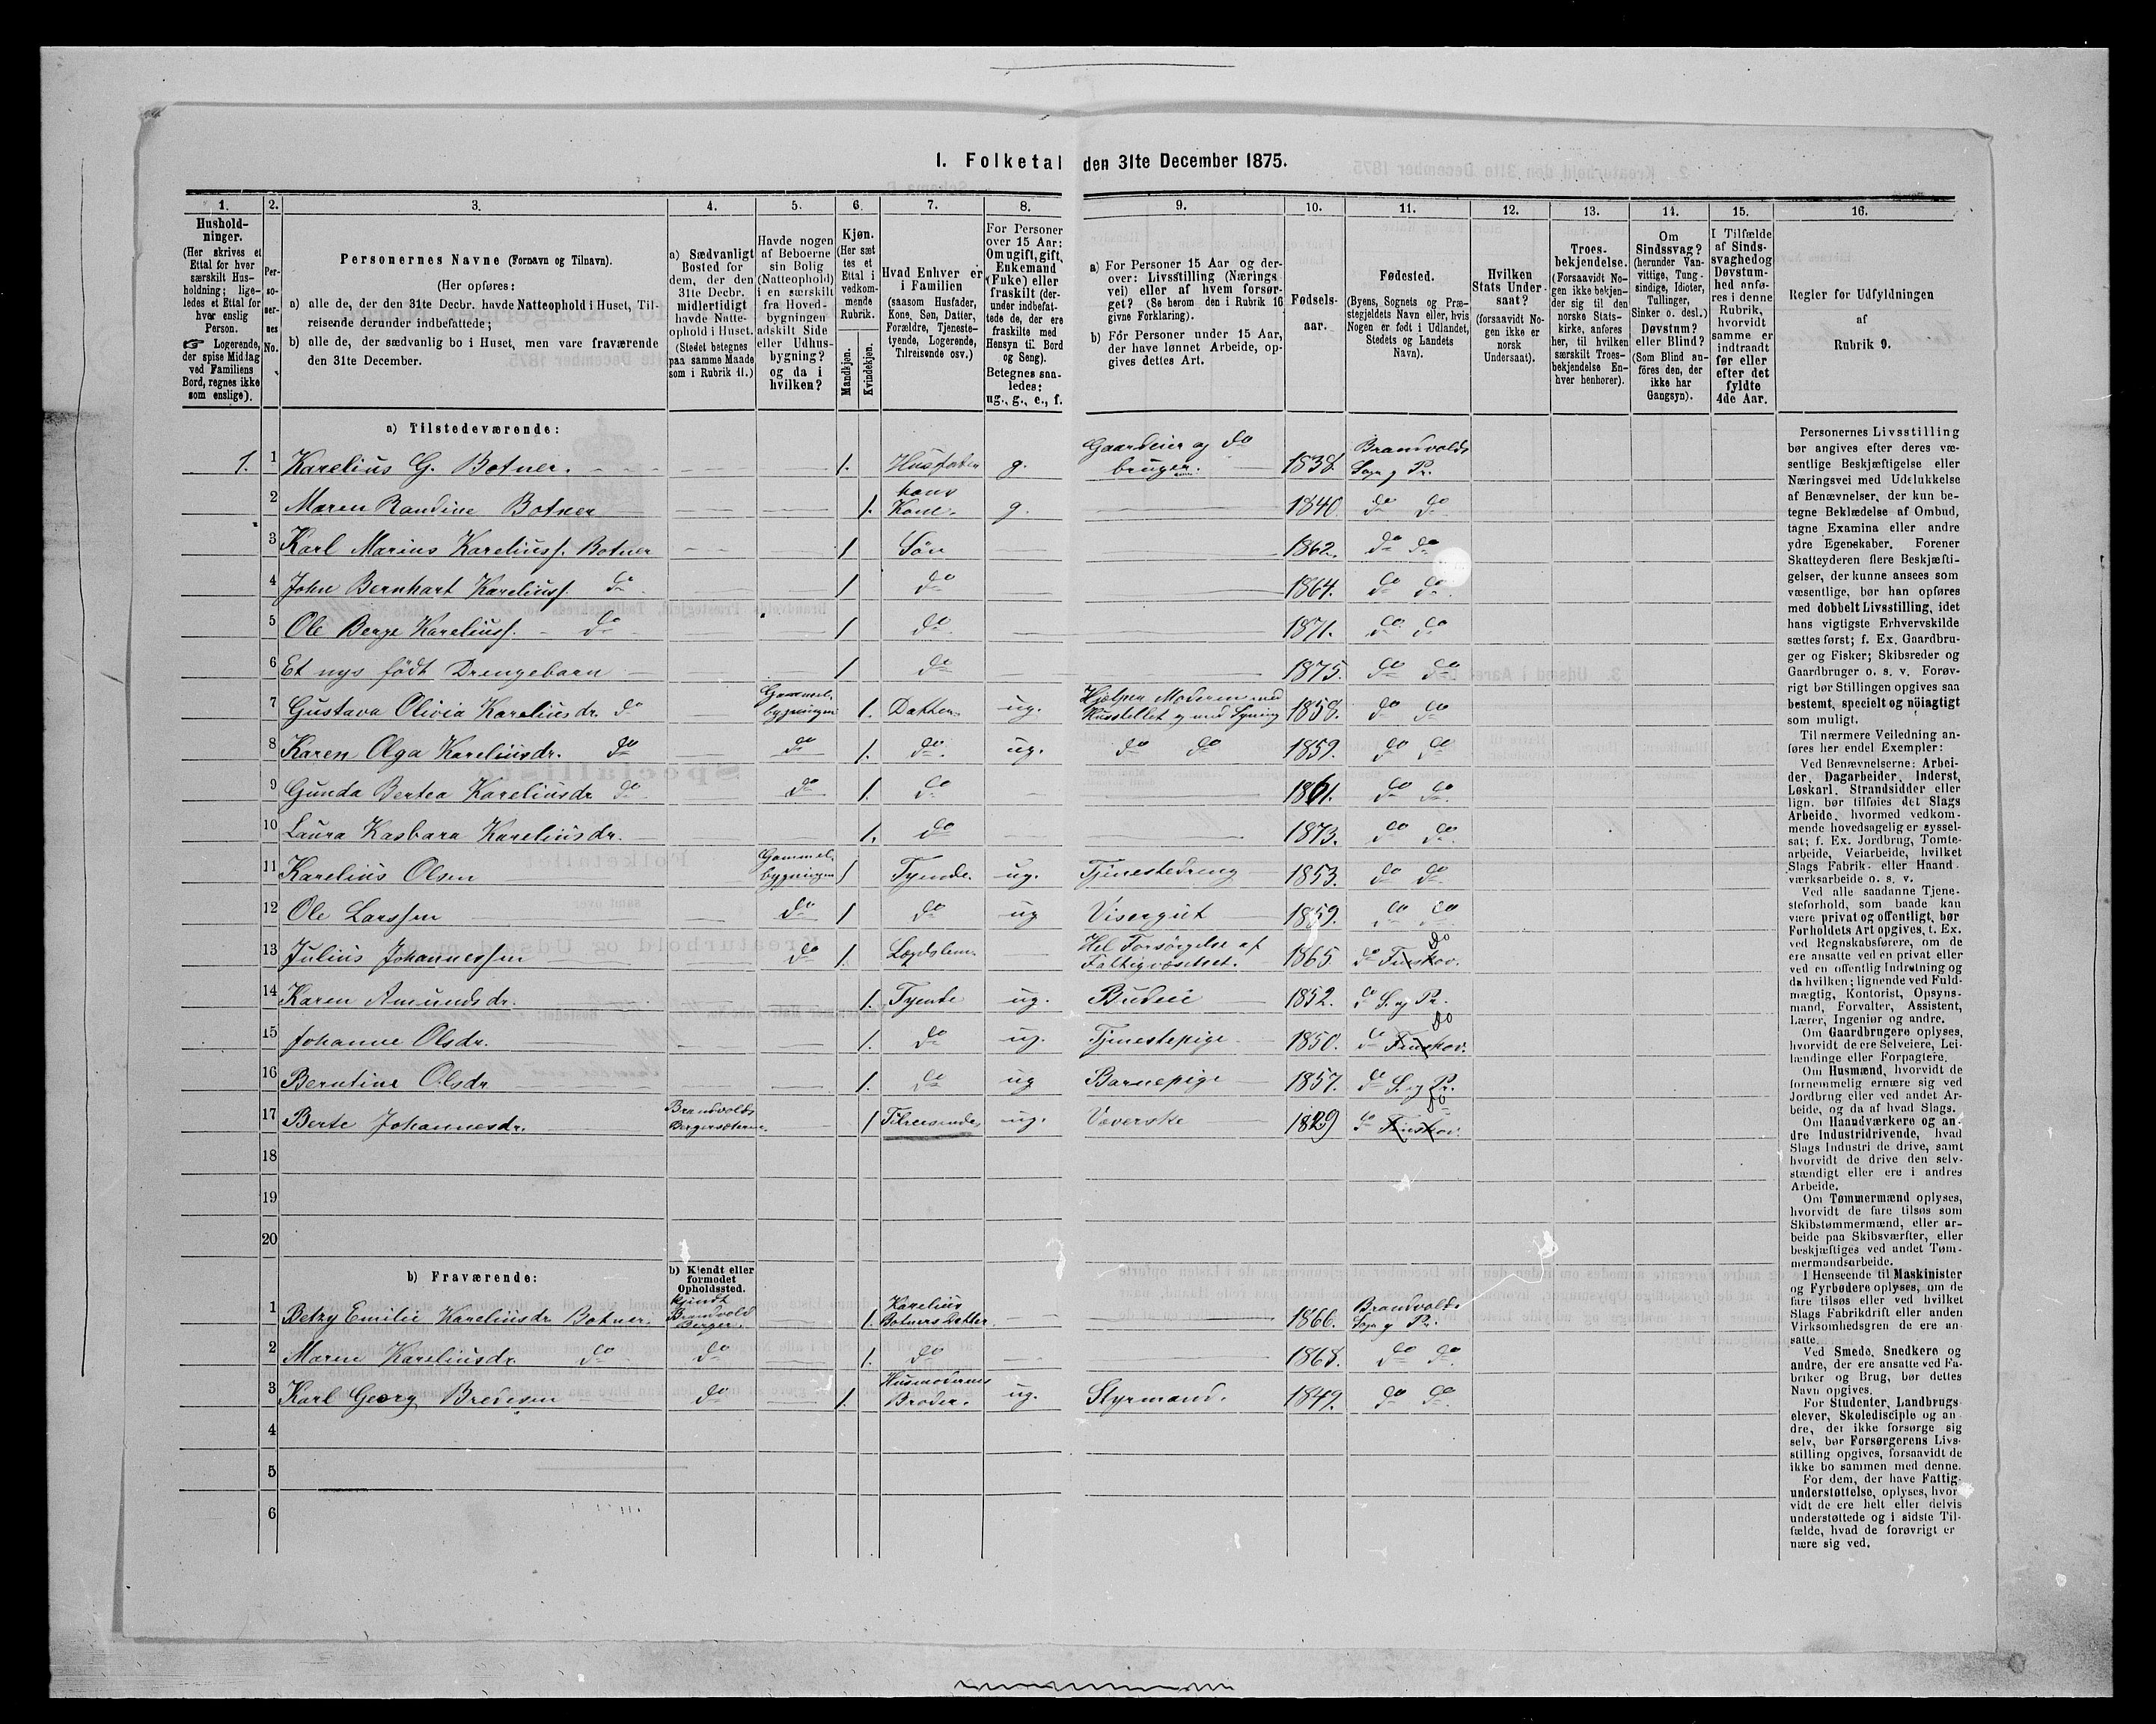 I. Folketal den 31te December 1875.
1. 2. 3. 4. 5. 6. 7. 8. 9. 10. 11. 12. 13. 14. 15. 16.
Hushold-
ninger.
(Her skrives et
Ettal for hver
særskilt Hus-
holdning; lige-
ledes et Ettal for
hver enslig
Person.
☞ Logerende,
der spise Middag
ved Familiens
Bord, regnes ikke
som enslige).
Per-
so-
ner-
nes
No.
Personernes Navne (Fornavn og Tilnavn).
(Her opføres:
a) alle de, der den 31te Decbr. havde Natteophold i Huset, Til-
reisende derunder indbefattede;
b) alle de, der sædvanlig bo i Huset, men vare fraværende
den 31te December.
a) Sædvanligt
Bosted for
dem, der den
31te Decbr.
midlertidigt
havde Natte-
ophold i Huset.
(Stedet betegnes
paa samme Maade
som i Rubrik 11.)
Havde nogen
af Beboerne
sin Bolig
(Natteophold)
i en særskilt
fra Hoved-
bygningen
adskilt Side
eller Udhus-
bygning?
og da i
hvilken?
Kjøn.
(Her sæt
tes et
Ettal i
vedkom-
mende
Rubrik.
Mandkjøn.
Kvindekjøn.
Hvad Enhver er
i Familien
(saasom Husfader,
Kone, Søn, Datter,
Forældre, Tjeneste-
tyende, Logerende,
Tilreisende osv.)
For Personer
over 15 Aar:
Om ugift, gift,
Enkemand
(Enke) eller
fraskilt (der-
under indbefat-
tede de, der ere
fraskilte med
Hensyn til Bord
og Seng).
Betegnes saa-
ledes:
ug., g., e., f.
a) For Personer 15 Aar og der-
over: Livsstilling (Nærings
vei) eller af hvem forsør-
get? (Se herom den i Rubrik 16
givne Forklaring).
b) For Personer under 15 Aar,
der have lønnet Arbeide, op-
gives dettes Art.
Fødsels-
aar.
Fødested.
(Byens, Sognets og Præ-
stegjeldets Navn eller, hvis
Nogen er født i Udlandet,
Stedets og Landets
Navn).
Hvilken
Stats Under-
saat?
(forsaavidt No-
gen ikke er
norsk
Undersaat).
Troes-
bekjendelse.
(Forsaavidt No-
gen ikke bekjen-
der sig til den
norske Stats-
kirke, anføres
her, til hvilken
særskilt Troes-
bekjendelse En-
hver henhører).
Om
Sindssvag?
(herunder Van-
vittige, Tung-
sindige, Idioter,
Tullinger,
Sinker o. desl.)
Døvstum?
eller Blind?
(Som Blind an-
føres den, der
ikke har
Gangsyn).
I Tilfælde
af Sinds-
svaghed og
Døvstum-
hed anfø-
res i denne
Rubrik,
hvorvidt
samme er
indtraadt
før eller
efter det
fyldte
4de Aar.
Regler for Udfyldningen
af
Rubrik 9.
a) Tilstedeværende:
1. 1 Karelius G. Botner. 1. Husfader g. Gaardeier og do bruger. 1838. Brandvolds Sogn og Pr.
2 Maren Randine Botner 1. hans Kone. g. 1840. do do
3 Karl Marius Kareliuss. Botner 1 Søn 1862. do do
4 John Bernhart Kareliuss. do 1 do 1864. do do
5 Ole Berge Kareliuss. do 1 do 1871. do do
6 Et nys født Drengebarn 1 do 1875. do do
7 Gustava Olivia Kareliusdr. do Gammel bygningen 1. Datter ug. Hjelper Moderen med Husstellet og med Syning 1858. do do
8 Karen Olga Kareliusdr. do do 1. do ug. do do 1859. do do
9 Gunda Bertea Kareliusdr do do 1. do 1861. do do
10 Laura Kasbara Kareliusdr. 1. do 1873. do do
11 Karelius Olsen Gammel bygningen 1 Tyende. ug. Tjenestedreng 1853. do do
12 Ole Larssen do 1 do ug Visergut 1859. do do
13 Julius Johannessen do 1. Lægdslem. Hel Forsørgelse af Fattigvæsenet. 1865. do Finskov. do
14 Karen Amundsdr. 1. Tyende ug. Budeie 1852. do S. og Pr.
15 Johanne Olsdr. 1. do ug. Tjenestepige 1850. do Finskov. do
16 Berntine Olsdr. 1. do ug Barnepige 1857. do S. og Pr.
17 Berte Johannesdr. Brandvolds Bergersæteren. 1 Tilreisende ug. Væverske 1829 do Finskov. do
18
19
20
b) Fraværende:
b) Kjendt eller
formodet
Opholdssted.
1 Betzy Emilie Kareliusdr. Botner. kjendt Brandvold Berger. 1. Karelius Botners Datter 1866. Brandvolds Sogn og Pr.
2 Maren Kareliusdr. do do 1. do 1868. do do
3 Karl Georg Bredesen do 1. Husmoderens Broder. ug. Styrmand. 1849. do do
4
5
6
Personernes Livsstilling
bør angives efter deres væ-
sentlige Beskjæftigelse eller
Næringsvei med Udelukkelse
af Benævnelser, der kun be-
tegne Beklædelse af Ombud,
tagne Examina eller andre
ydre Egenskaber. Forener
Skatteyderen flere Beskjæfti-
gelser, der kunne ansees som
væsentlige, bør han opføres
med dobbelt Livsstilling, idet
hans vigtigste Erhvervskilde
sættes først; f. Ex. Gaardbru-
ger og Fisker; Skibsreder og
Gaardbruger o. s. v. Forøv-
rigt bør Stillingen opgives saa
bestemt, specielt og nöiagtigt
som muligt.
Til nærmere Veiledning an-
føres her endel Exempler:
Ved Benævnelserne: Arbei-
der, Dagarbeider, Inderst,
Løskarl, Strandsidder eller
lign. bør tilføies det Slags
Arbeide, hvormed vedkom-
mende hovedsagelig er syssel-
sat; f. Ex. Jordbrug, Tomte-
arbeide, Veiarbeide, hvilket
Slags Fabrik- eller Haand
værksarbeide o. s. v.
Ved alle saadanne Tjene-
steforhold, som baade kan
være privat og offentligt, bør
Forholdets Art opgives, t. Ex.
ved Regnskabsførere, om de
ere ansatte ved en privat eller
ved en offentlig Indretning og
da hvilken; lignende ved Fuld-
mægtig, Kontorist, Opsyns-
mand, Forvalter, Assistent,
Lærer, Ingeniør og andre.
Om Gaardbrugere oplyses,
hvorvidt de ere Selveiere, Lei-
lændinge eller Forpagtere.
Om Husmænd, hvorvidt de
fornemmelig ernære sig ved
Jordbrug eller ved andet Ar-
beide, og da af hvad Slags.
Om Haandværkere og an-
dre Industridrivende, hvad
Slags Industri de drive, samt
hvorvidt de drive den selv-
stændigt eller ere i andres
Arbeide.
Om Tømmermænd oplyses,
hvorvidt de fare tilsøs som
Skibstømmermænd, eller ar-
beide paa Skibsværfter, eller
beskjæftiges ved andet Tøm-
mermandsarbeide.
I Henseende til Maskinister
og Fyrbødere oplyses, om de
fare tilsøs eller ved hvilket
Slags Fabrikdrift eller anden
Virksomhedsgren de ere an-
satte.
Ved Smede, Snedkere og
andre, der ere ansatte ved Fa-
briker og Brug, bør dettes
Navn opgives.
For Studenter, Landbrugs
elever, Skoledisciple og an-
dre, der ikke forsørge sig
selv, bør Forsørgerens Livs-
stilling opgives, forsaavidt de
ikke bo sammen med denne.
For dem, der have Fattig-
understøttelse, oplyses, hvor
vidt de ere helt eller delvis
understøttede og i sidste Til-
fælde, hvad de forøvrigt er
nære sig ved.